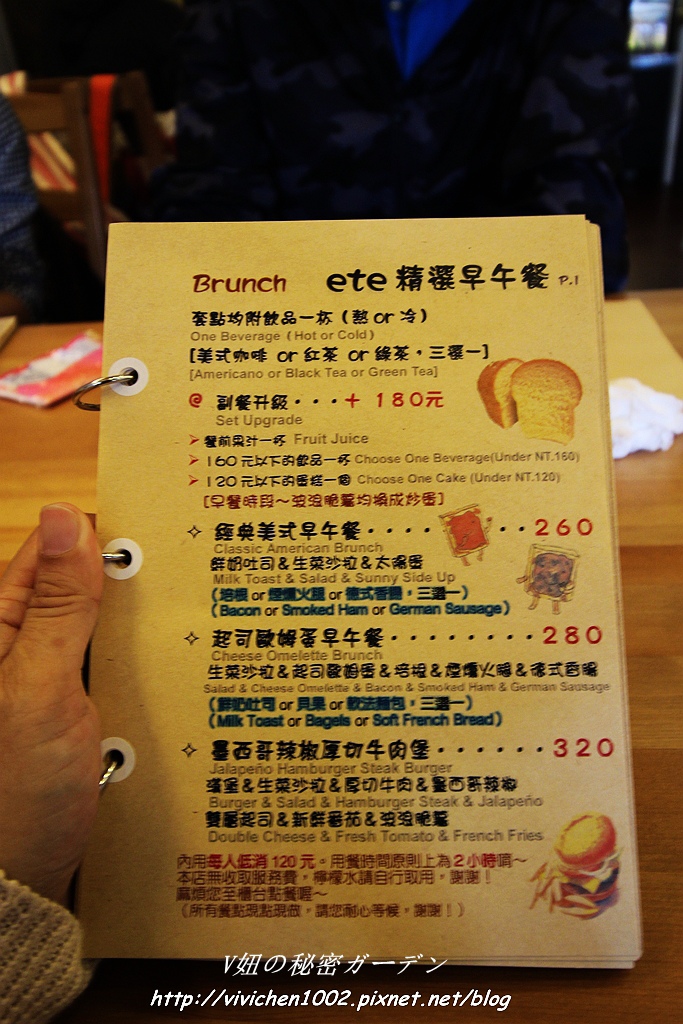 Brunch ete 精選早午餐 P.1
套點均附飲品一杯 (熱 or 冷)
One Beverage (Hot or Cold)
[美式咖啡 or 紅茶 or 綠茶,三選一]
[Americano or Black Tea or Green Tea]
@ 副餐升級・・・+ 180元
Set Upgrade
➢ 餐前果汁一杯 Fruit Juice
➢ 160 元以下的飲品一杯 Choose One Beverage(Under NT.160)
➢ 120 元以下的蛋糕一個 Choose One Cake (Under NT.120)
[早餐時段~波浪脆薯均換成炒蛋]
✧ 經典美式早午餐・・・・ ・・260
Classic American Brunch
鮮奶吐司&生菜沙拉&太陽蛋
Milk Toast & Salad & Sunny Side Up
(培根 or 煙燻火腿 or 德式香腸,三選一)
(Bacon or Smoked Ham or German Sausage)
✧ 起司歐姆蛋早午餐・・・・・・・・280
Cheese Omelette Brunch
生菜沙拉&起司歐姆蛋&培根&煙燻火腿&德式香腸
Salad & Cheese Omelette & Bacon & Smoked Ham & German Sausage
(鮮奶吐司 or 貝果 or 軟法麵包,三選一)
(Milk Toast or Bagels or Soft French Bread)
✧ 墨西哥辣椒厚切牛肉堡・・・・・・320
Jalapeño Hamburger Steak Burger
漢堡&生菜沙拉&厚切牛肉&墨西哥辣椒
Burger & Salad & Hamburger Steak & Jalapeño
雙層起司&新鮮番茄&波浪脆薯
Double Cheese & Fresh Tomato & French Fries
內用每人低消 120 元。用餐時間原則上為 2 小時唷~
本店無收取服務費,檸檬水請自行取用,謝謝!
麻煩您至櫃台點餐喔~
(所有餐點現點現做,請您耐心等候,謝謝!)
V妞の秘密ガーデン
http://vivichen1002.pixnet.net/blog